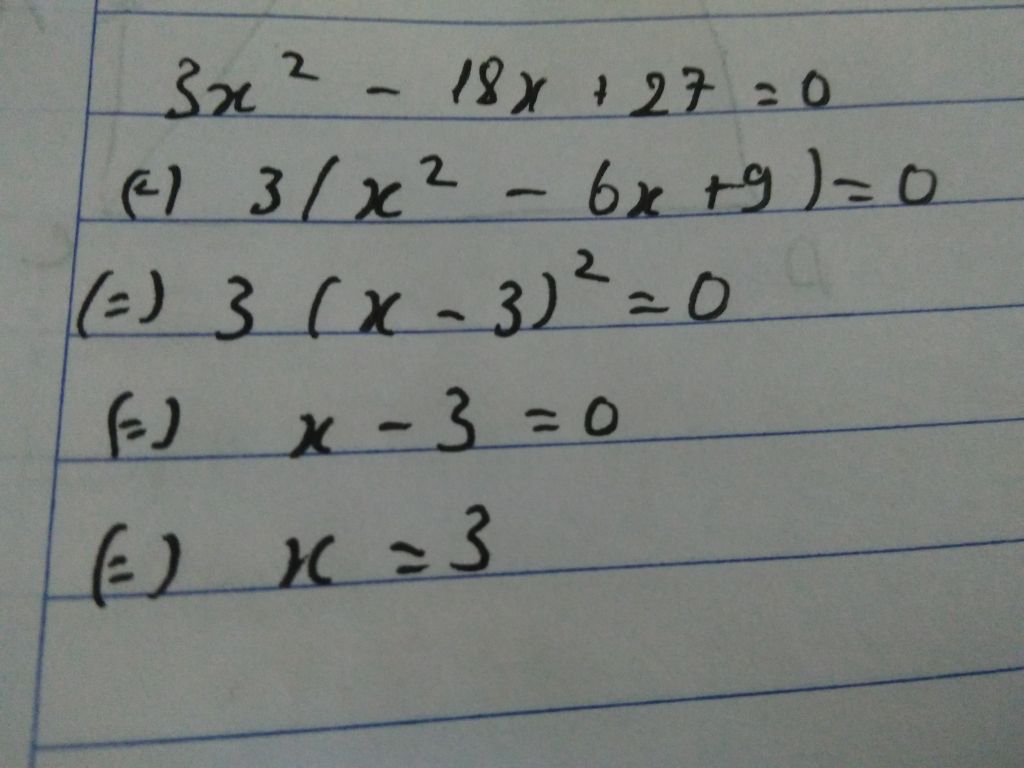 3x² - 18x + 27 = 0
(=) 3(x² - 6x + 9) = 0
(=) 3(x - 3)² = 0
(=) x - 3 = 0
(=) x = 3